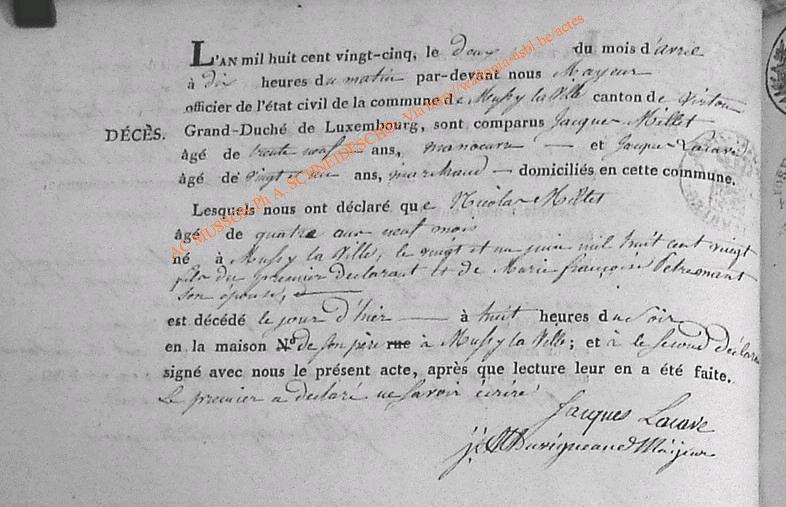 L'AN mil huit cent vingt-cinq, le deux du mois d'avril
à dix heures du matin par-devant nous Mayeur
officier de l'état civil de la commune de Mussy la Ville canton de Virton
DÉCÈS. Grand-Duché de Luxembourg, sont comparus Jacques Millet
âgé de trente neuf ans, manoeuvre — et Jacques Lacave
âgé de vingt et un ans, marchand — domiciliés en cette commune.
Lesquels nous ont déclaré que Nicolas Millet
âgé de quatre ans neuf mois
né à Mussy la Ville, le vingt et un juin mil huit cent vingt
fils du premier déclarant et de Marie françoise
son épouse,
est décédé le jour d'hier — à huit heures du soir
en la maison N° de son père rue à Mussy la Ville; et à le second déclarant
signé avec nous le présent acte, après que lecture leur en a été faite.
Le premier a déclaré ne savoir écrire
Jacques Lacave
Mayeur
AC MUSSON Ph A. SCHNEIDESCH Via asbl.be/actes